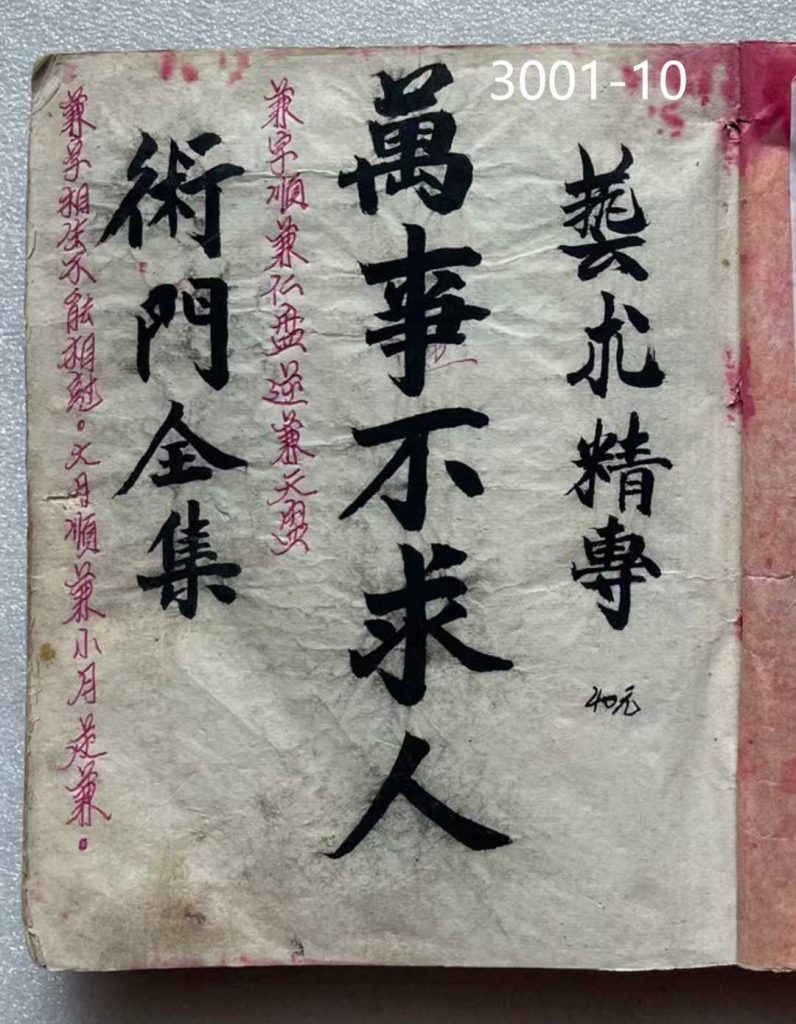 3001-10
藝朮精專
40元
萬事不求人
兼字順兼仁盘逆兼天盘
術門全集
兼字相生不能相尅。大月順兼小月逆兼。